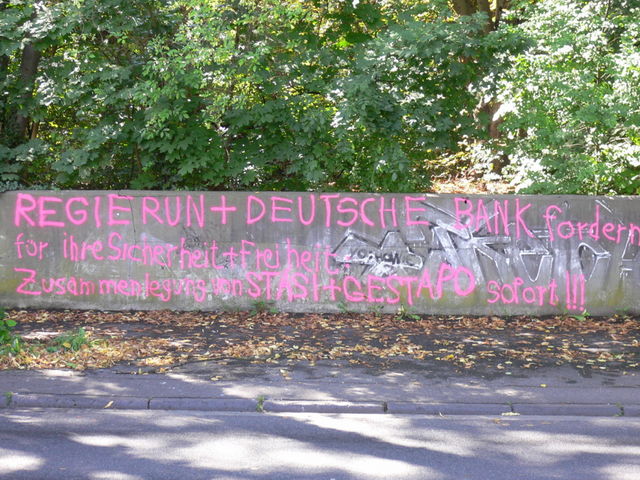 REGIERUN+DEUTSCHE BANK fordern
für ihre Sicherheit+Freiheit
Zusammenlegung von STASI+GESTAPO sofort!!!